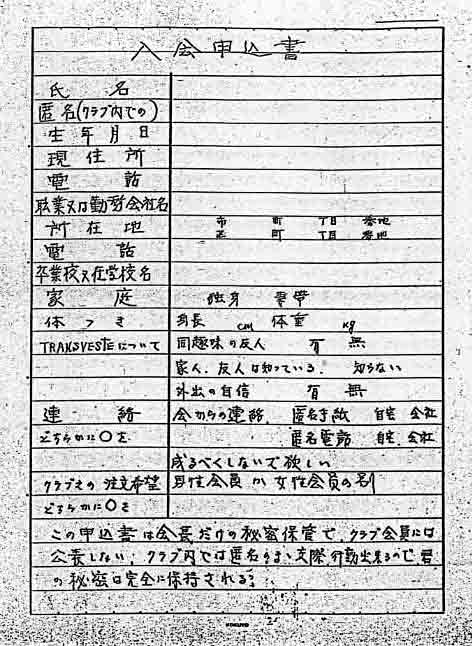 入会申込書
氏 名
匿名(クラブ内での)
生年月日
現住所
電 話
職業又は勤務会社名
所在地 市 町 丁目 番地
区 町 丁目 番地
電 話
卒業校又在学校名
家 庭 独身 妻帯
体つき 身長 cm 体重 kg
TRANSVESTEについて 同趣味の友人 有 無
家人、友人は知っている. 知らない
外出の自信 有 無
連 絡 会からの連絡. 匿名手紙 自宅 会社
どちらかに○を 匿名電話 自宅. 会社
成るべくしないで欲しい
クラブえの 注文希望 男性会員か女性会員の別
どちらかに○を
この申込書は会長だけの秘密保管で、クラブ会員には
公表しない. クラブ内では匿名のまゝ交際行動出来るので君
の秘密は完全に保持される.
KOKUYO